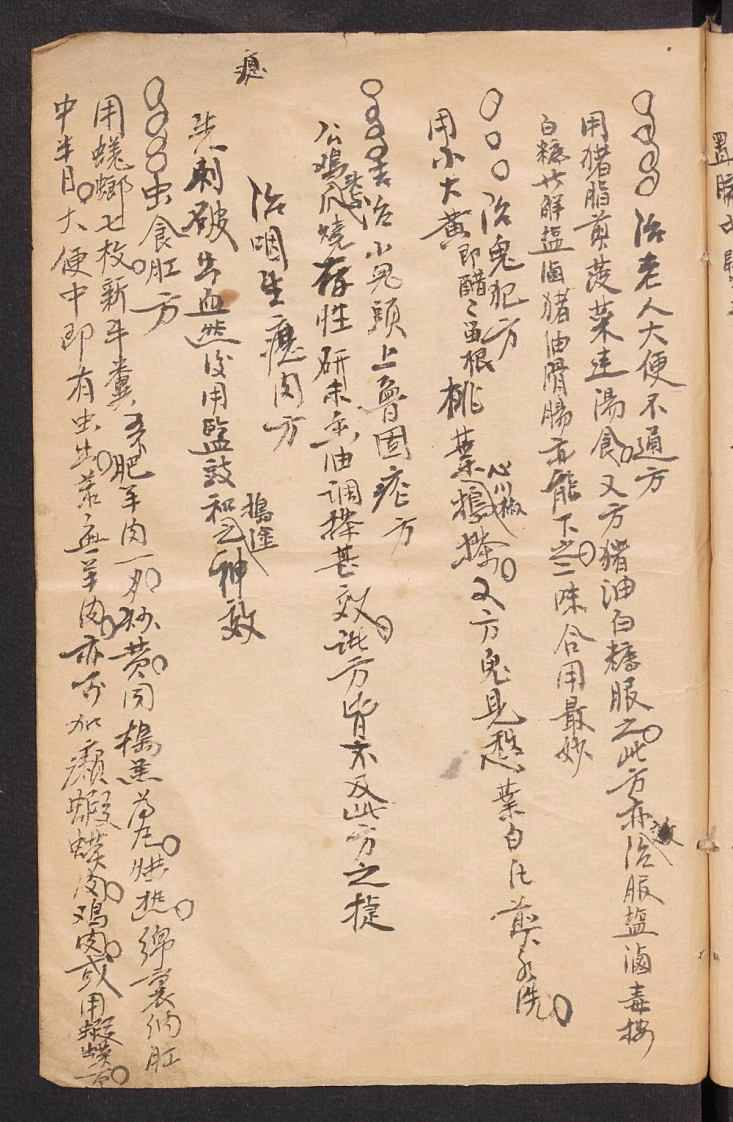 治老人大便不通方
用猪脂煎菠菜連湯食又方猪油白糖服之此方亦治服鹽滷毒按
白糖能解鹽滷猪油滑腸亦能下之二味合用最妙
治鬼犯方
用小大黄即醋々畄根桃葉心川椒搗搽又方鬼見愁葉白氏煎水洗
治小兒頭上 瘡方
公鷄爪燒存性研末香油調搽甚效諸方皆不及此方之捷
治咽生瘜肉方
瘜
先刺破出血然後用鹽豉和搗塗之神效
虫食肛方
用蜣螂七枚新牛糞 肥羊肉一两炒黄同搗 為丸烘热綿裹納肛
中半日大便中即有虫出若無羊肉亦可加癩蝦蟆肉鷄肉或用蝦蟆